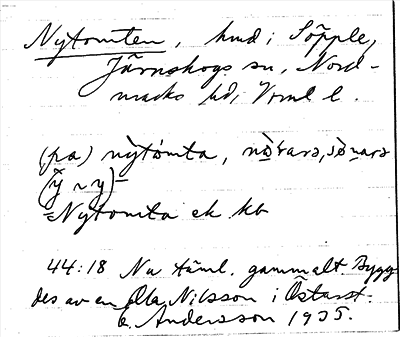 Nytomten, hmd i Söpple,
Järnskogs sn, Nord-
marks hd, Vrml l.
(pa) nỳtómta, nø̀rarə, sø̀narə
(ỹ ~ y)
=Nytomta ek kb
44:18 Nu täml. gammalt. Bygg-
des av en Olla Nilsson i Östarst.
E. Andersson 1935.